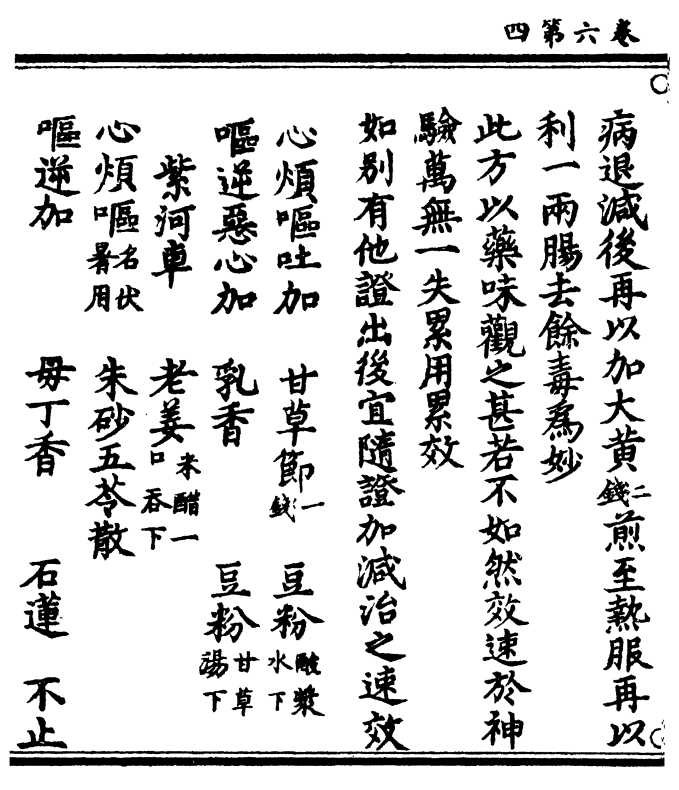 卷六第四
病退減後再以加大黄二錢煎至熱服再以
利一兩腸去餘毒爲妙
此方以藥味觀之甚若不如然效速於神
驗萬無一失累用累效
如別有他證出後宜隨證加減治之速效
心煩嘔吐加 甘草節一錢 豆粉酸漿水下
嘔逆惡心加 乳香 豆粉甘草湯下
紫河車 老姜米醋一口吞下
心煩嘔名伏暑用 朱砂五苓散
嘔逆加 毋丁香 石蓮 不止